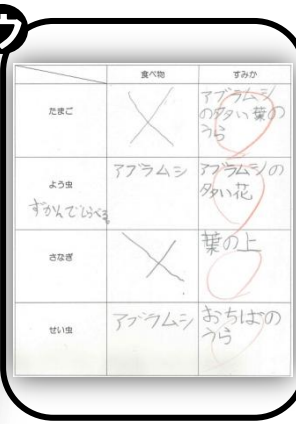 ウ
食べ物 すみか
たまご
アブラムシ
の多い葉の
うら
よう虫
ずかんでしらべる。
アブラムシ
アブラムシの
多い花
さなぎ
葉の上
せい虫
アブラムシ
おちばの
うら